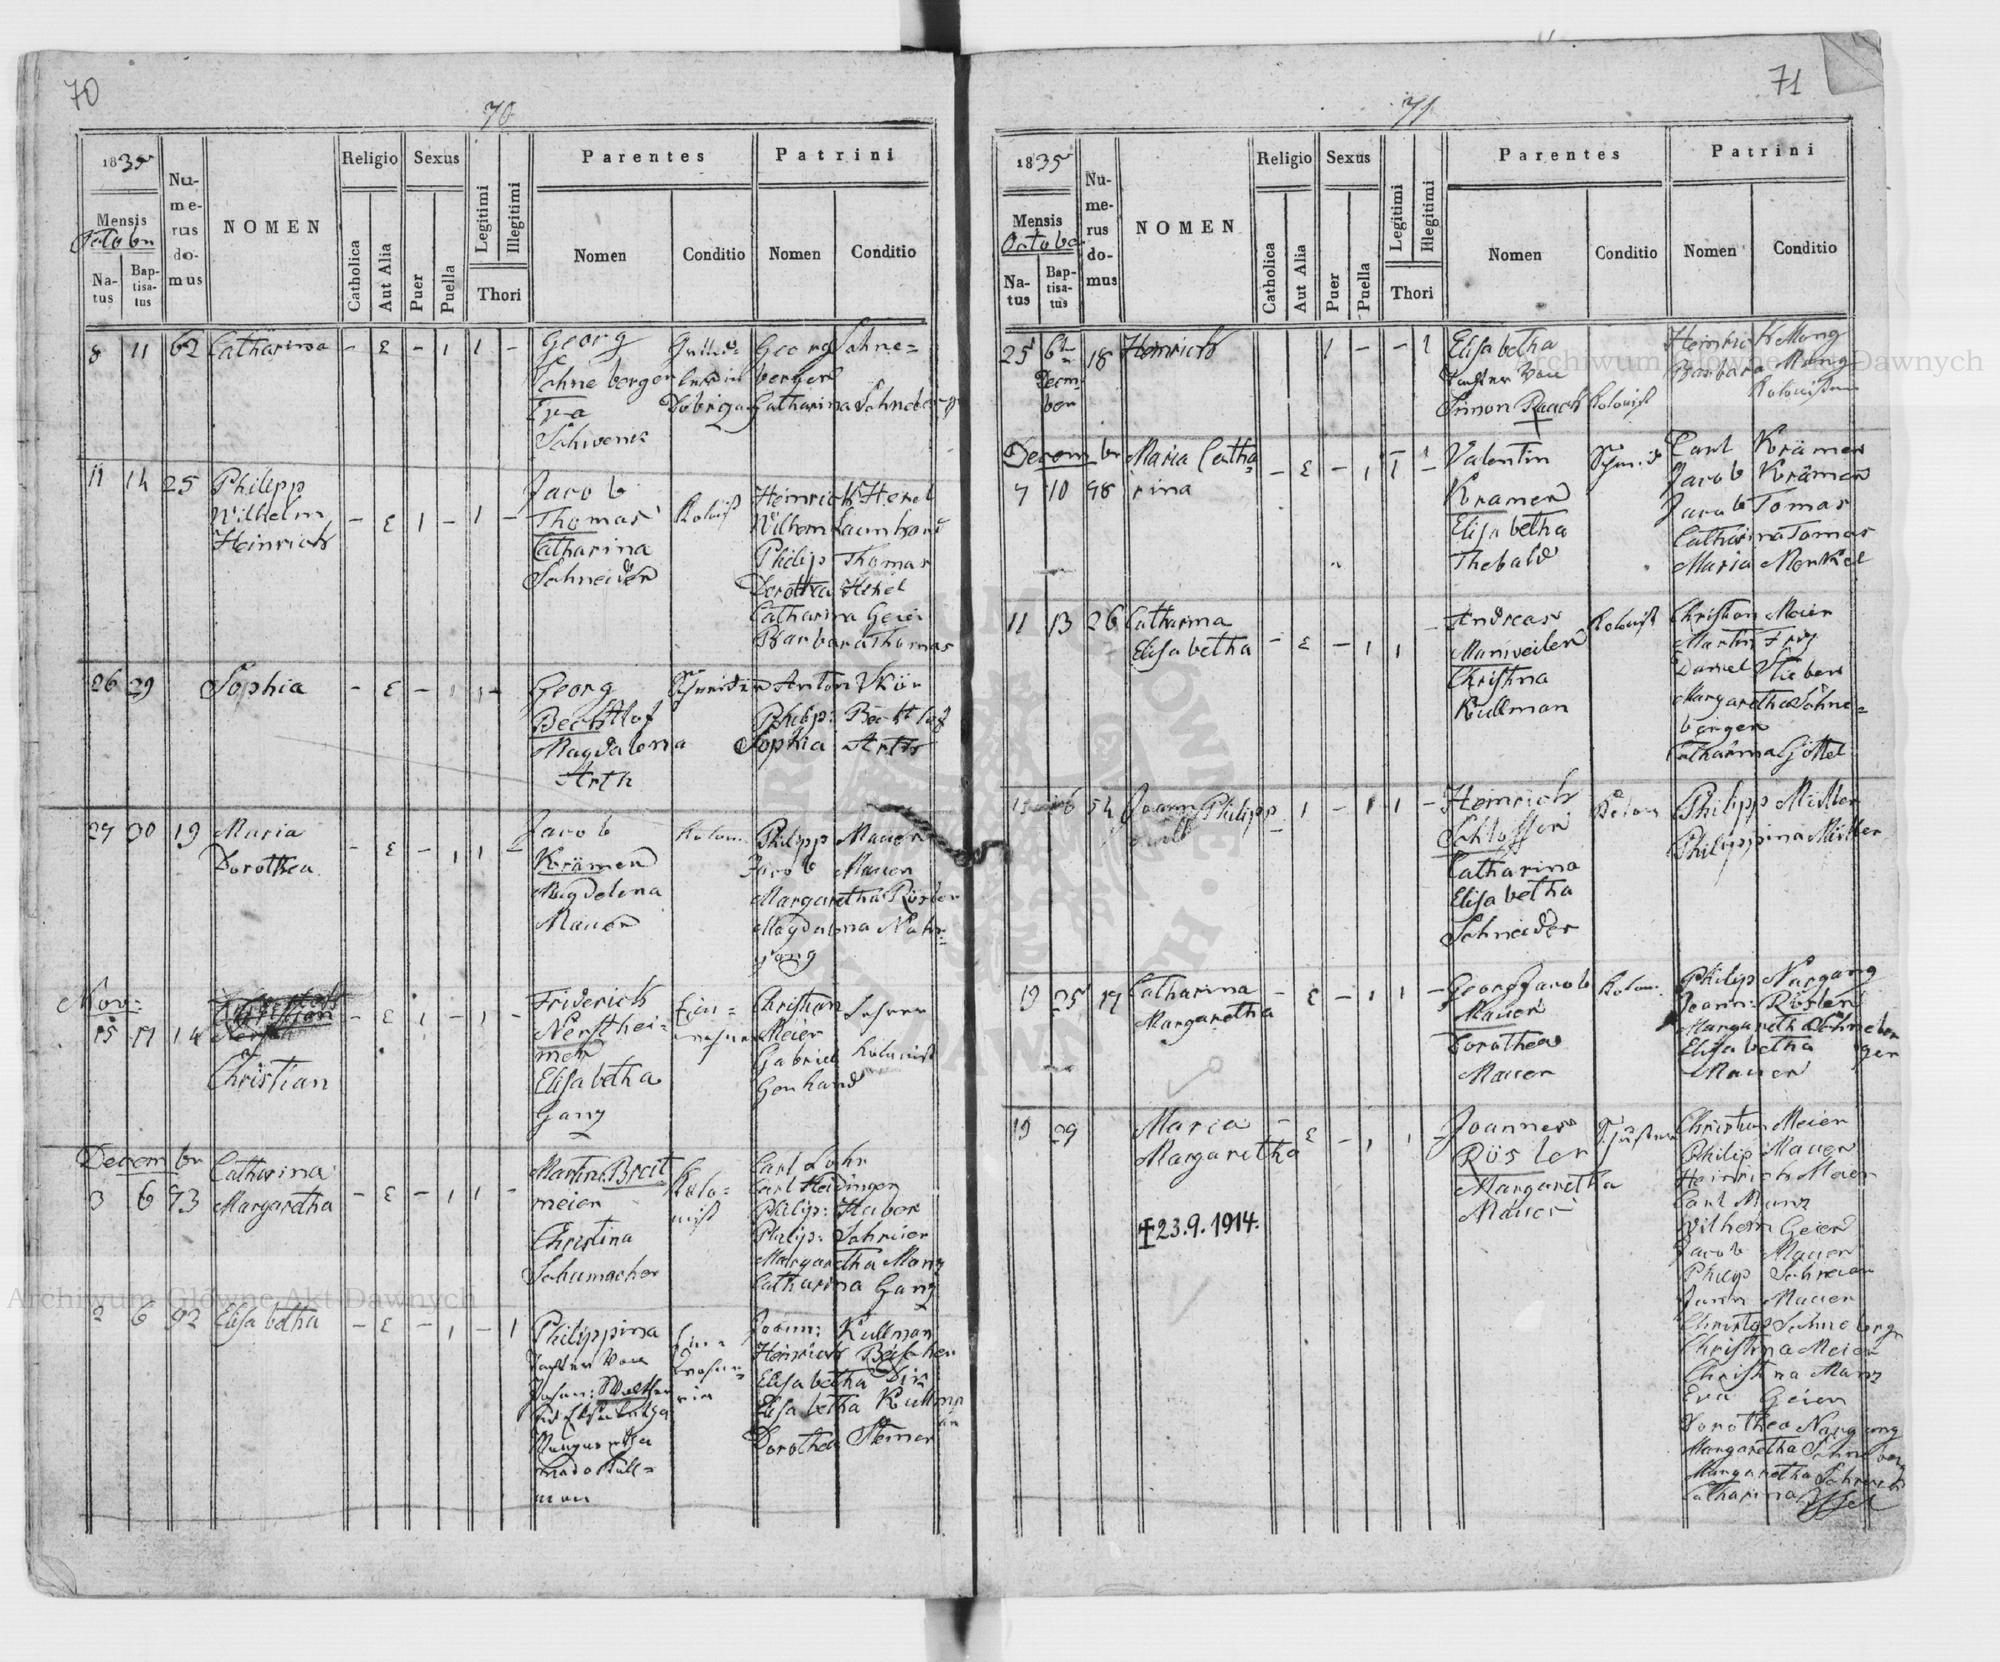 70
70
1835
Mensis
October
Natus
Baptisatus
Numerus domus
NOMEN
Religio
Catholica
Aut Alia
Sexus
Puer
Puella
Legitimi
Illegitimi
Thori
Parentes
Nomen
Conditio
Patrini
Nomen
Conditio
8 11 62 Catharina - ε - 1 1 -
Georg
Schneberger
Eva
Schwenk
Georg Schne=
berger
Catharina Schneberger
11 14 25 Philipp
Wilhelm
Heinrich
- ε 1 - 1 -
Jacob
Thomas
Catharina
Schneider
Kolonist
Heinrich Hexel
Wilhem Launhard
Philip Thomas
Dorothea Hexel
Catharina Geier
Barbara Thomas
26 29 Sophia - ε - 1 1 -
Georg
Bechtlof
Magdalena
Arth
Schneider
Anton
Philip: Bechtlof
Sophia Arth
29 30 19 Maria
Dorothea
- ε - 1 1 -
Jacob
Krämer
Magdelena
Mauer
Kolon.
Philipp Mauer
Jacob Mauer
Margaretha Rösler
Magdalena Nahr=
gang
Nov:
15 17 14
Christian
- ε 1 - 1 -
Friderich
Nerfthei=
mer
Elisabetha
Ganz
Ein=
wohner
Christian
Meier
Lehrer
Gabriel Kolonist
Genhard
December
3 6 93 Catharina
Margaretha
- ε - 1 1 -
Martin Breit
meier
Christina
Schumacher
Kolo=
nist
Carl Lohr
Carl Heidinger
Philip: Huber
Philip: Schreier
Margaretha Manz
Catharina Ganz
2 6 92 Elisabetha - ε - 1 - 1
Philippina
Tochter von
Johan: Walther
Elisabetha
Margaretha
Kull=
man
Ein=
wohne=
rin
Joann: Kullman
Heinrich Beischer
Elisabetha
Elisabetha Kullman
Dorothea
71
71
1835
Mensis
October
Natus
Baptisatus
Numerus domus
NOMEN
Religio
Catholica
Aut Alia
Sexus
Puer
Puella
Legitimi
Illegitimi
Thori
Parentes
Nomen
Conditio
Patrini
Nomen
Conditio
25 6
Decem
ber
18 Heinrich
1 - - 1
Elisabetha
Tochter von
Simon Rauch Kolonist
Heinrich Mang
Barbara Mang
December
7 10 98 Maria Catha=
rina
- ε - 1 1 -
Valentin
Kramer
Elisabetha
Thebald
Schmid
Carl Krämer
Jacob Krämer
Jacob Tomas
Catharina Tomas
Maria Merkel
11 13 26 Catharina
Elisabetha
- ε - 1 1
Andreas
Manweiler
Christina
Kullman
Kolonist
Christian Meier
Martin
Daniel Stieber
Margaretha Schne=
berger
Catharina Göttel
54 Joann Philipp
- 1 - 1 1 -
Heinrich
Schlosser
Catharina
Elisabetha
Schneider
Philipp Müller
Philippina Müller
19 25 17 Catharina
Margaretha
- ε - 1 1 -
Georg Jacob
Mauer
Dorothea
Mauer
Kolon.
Philip Nargang
Joann: Rösler
Margaretha Schneber
ger
Elisabetha
Mauer
19 29 Maria
Margaretha
- ε - 1 1 -
Joannes
Rösler
Margaretha
Mauer
Christian Meier
Philip Mauer
Heinrich Meier
Carl Manz
Wilhem Geier
Jacob Mauer
Philip Schreier
Joann Mauer
Christop Schneberger
Christina Meier
Christina Manz
Eva Geier
Dorothea Nargang
Margaretha Schneberg
Margaretha Schreier
Catharina
‡23.9.1914.
Archiwum Główne Akt Dawnych
Archiwum Główne Akt Dawnych